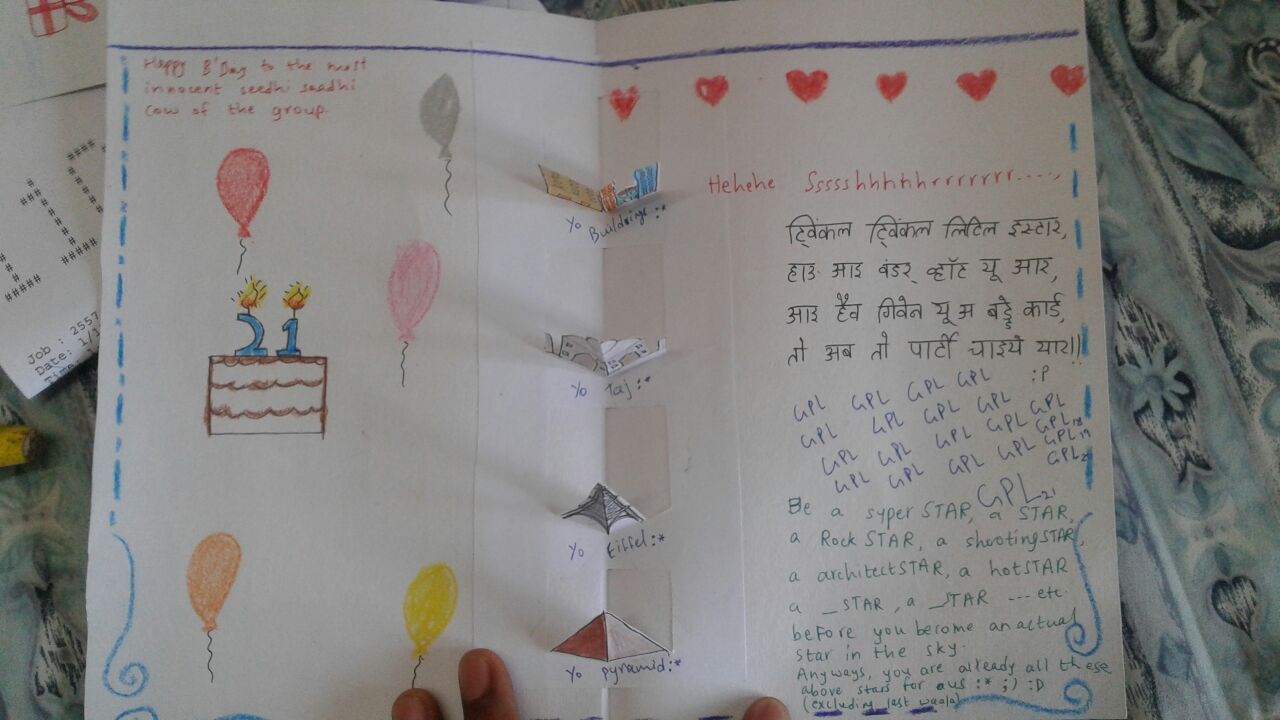 Happy B'Day to the most
innocent seedhi saadhi
cow of the group.
21
Yo Buildings :*
Yo Taj :*
Yo Eiffel :*
Yo Pyramid :*
Hehehe Sssshhhhhrrrrrrr....,
ट्विंकल ट्विंकल लिटिल इस्टार,
हाउ आइ वंडर् व्हॉट यू आर,
आइ हैव गिवेन यू अ बड्डे कार्ड,
तो अब तो पार्टी चाइये यार!!
:P
GPL GPL GPL GPL
GPL GPL GPL GPL GPL
GPL GPL GPL GPL GPL18
GPL GPL GPL GPL GPL19
GPL2
GPL21
Be a super STAR, a STAR,
a Rock STAR, a shooting STAR,
a architect STAR, a hot STAR
a _ STAR, a _ STAR --- etc.
before you become an actual
star in the sky.
Anyways, you are already all these
above stars for aus :* ;) :D
(excluding last waala)
Job : 2557
Date: 1/1
Time